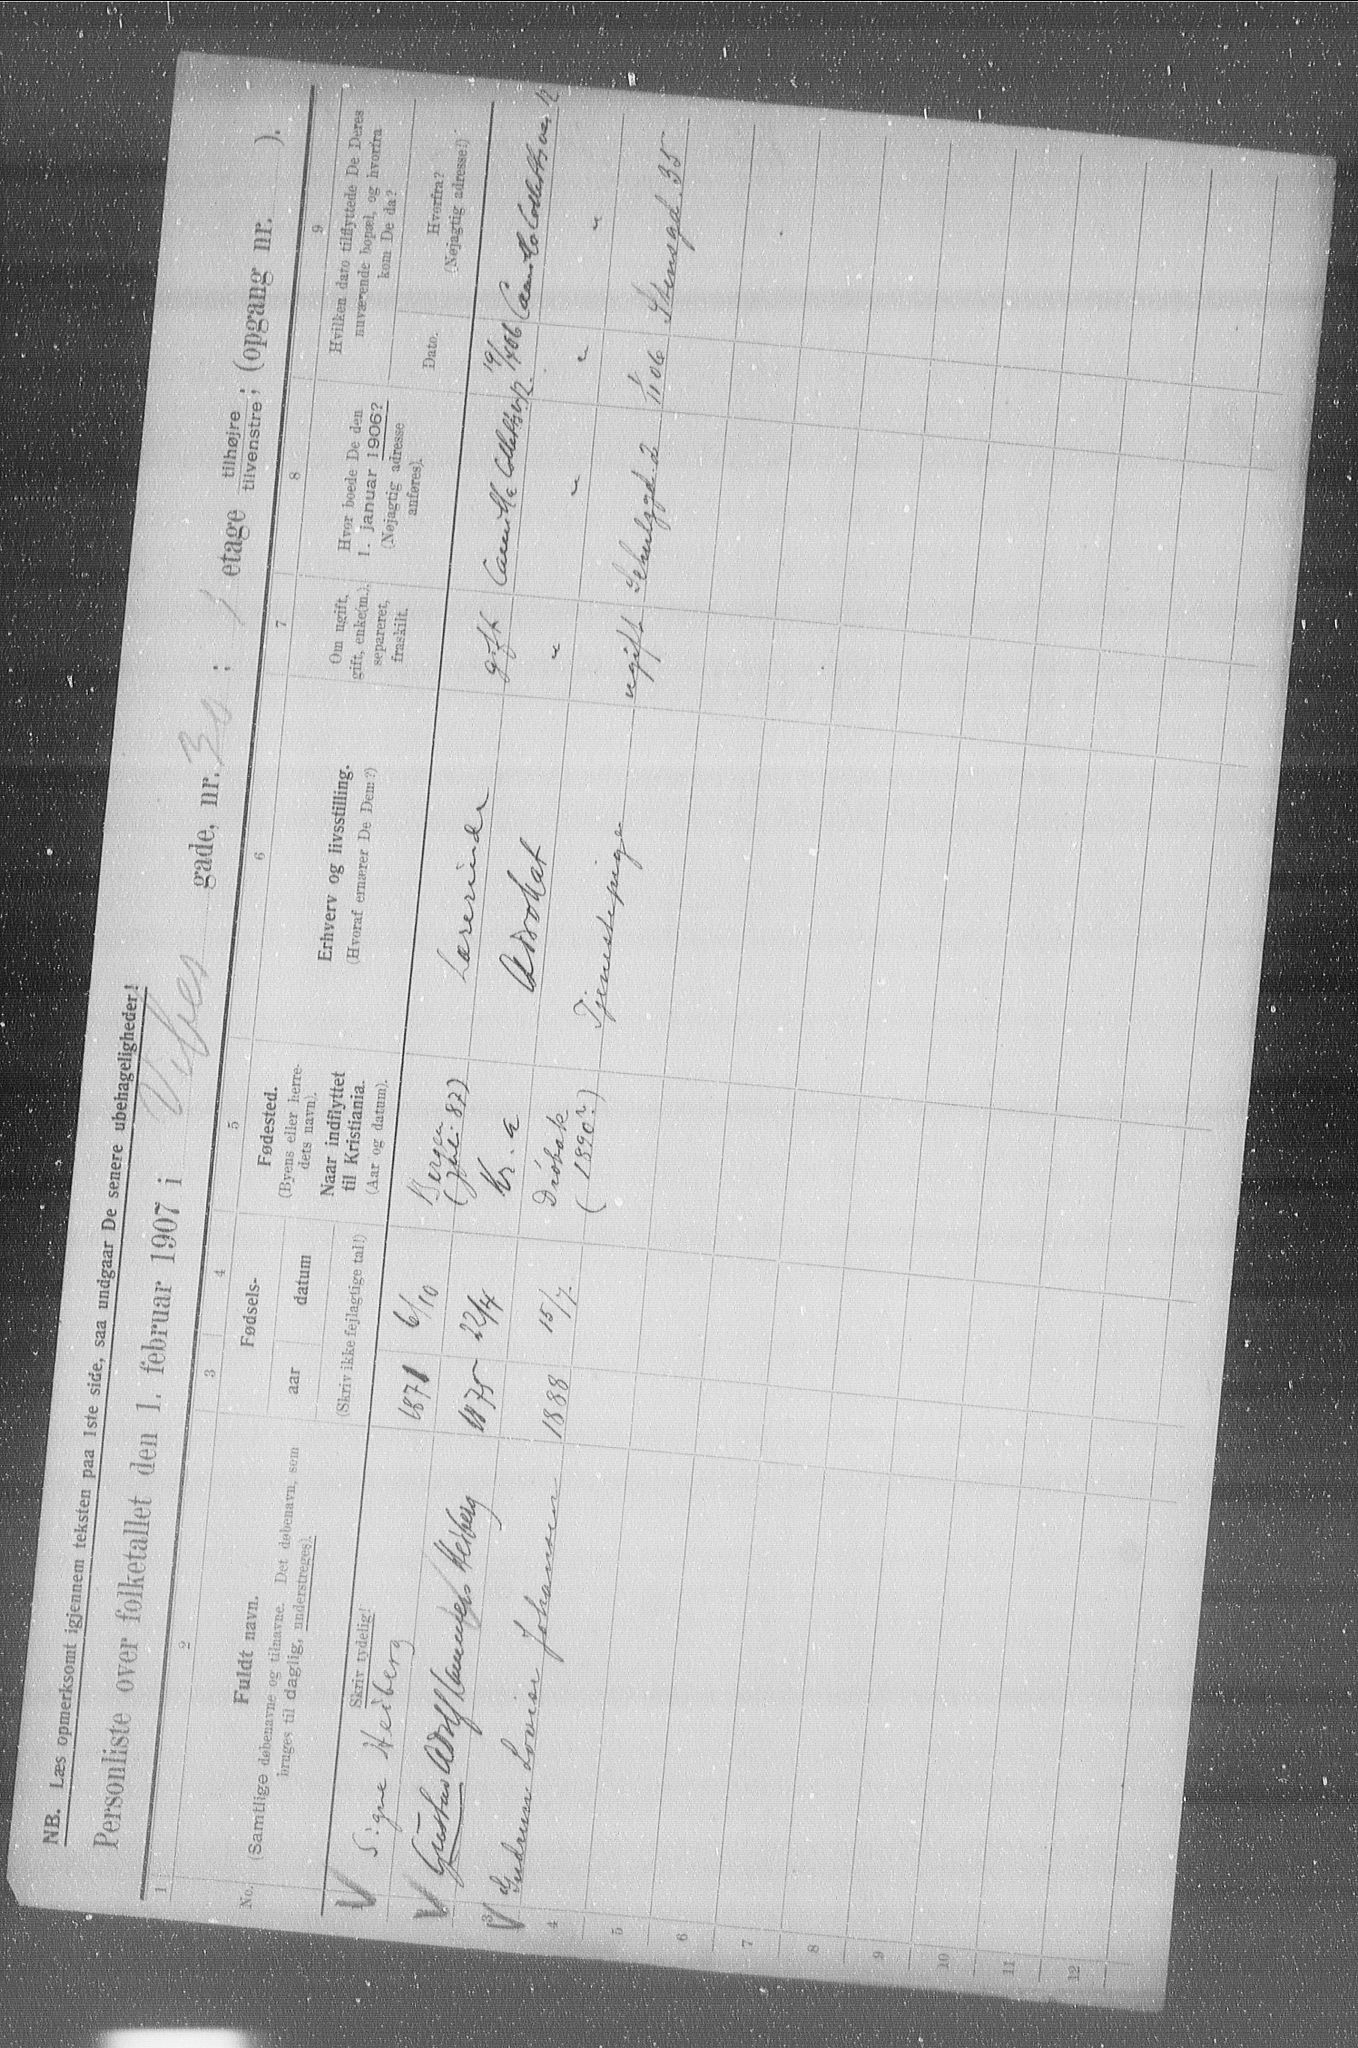 NB. Læs opmerksomt igjennem teksten paa 1ste side, saa undgaar De senere ubehageligheder!
Personliste over folketallet den 1. februar 1907 i Vibes gade, nr. 30; 1 etage tilhøjre; tilvenstre; (opgang nr. ).
1 2 3 4 5 6 7 8 9
No.
Fuldt navn.
(Samtlige døbenavne og tilnavne. Det døbenavn, som
bruges til daglig, understreges).
Skriv tydelig!
Fødsels-
aar datum
(Skriv ikke fejlagtige tal!)
Fødested.
(Byens eller herre-
dets navn).
Naar indflyttet
til Kristiania.
(Aar og datum).
Erhverv og livsstilling.
(Hvoraf ernærer De Dem?)
Om ugift,
gift, enke(m.),
separeret,
fraskilt.
Hvor boede De den
1. januar 1906?
(Nøjagtig adresse
anføres).
Hvilken dato tilflyttede De Deres
nuværende bopæl, og hvorfra
kom De da?
Dato.
Hvorfra?
(Nøjagtig adresse!)
Signe Heiberg 1871 6/10 Bergen Lærerinde gift Camilla Collettsv 2 19/4 06 Camilla Collettsvei 2
(juli 87)
Gustav Adolf Heiberg 1875 22/4 Kr.a Advokat " " " "
3 Gudrun Lovise Johansen 1888 15/7 Drøbak Tjenestepige ugift Schulzgd. 2 1/11 06 Stensgd. 35
(1890?)
4
5
6
7
8
9
10
11
12